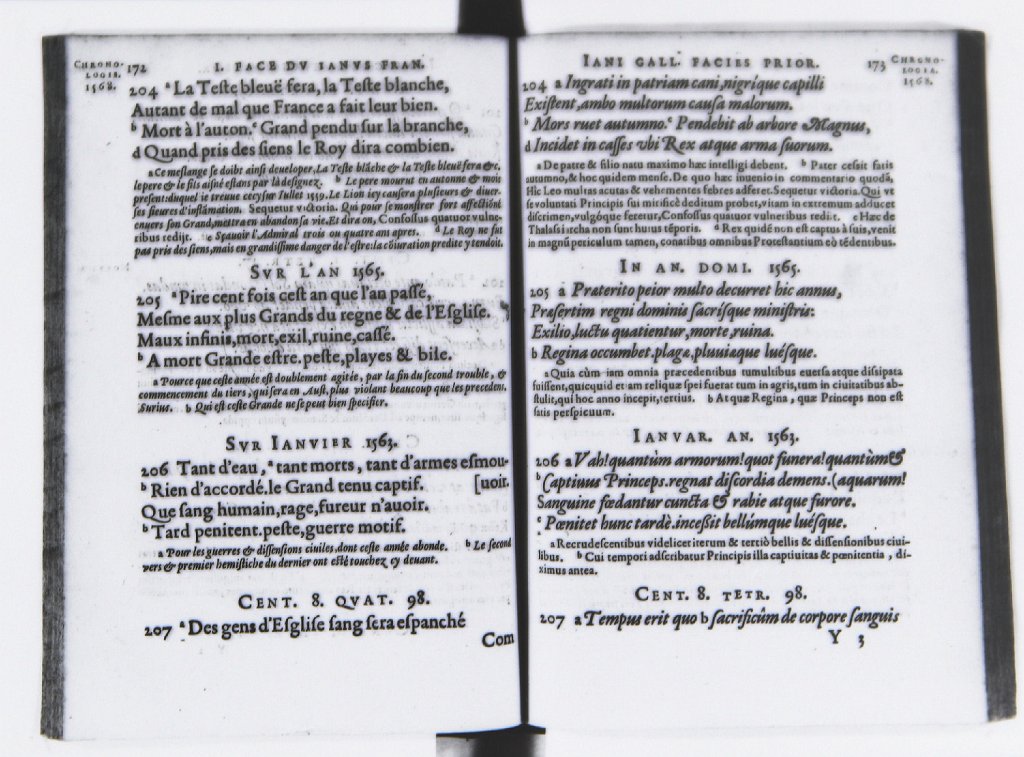 CHRONO-
LOGIE.
1568.
172 I. FACE DV IANVS FRAN.
204 ᵃ La Teſte bleuë ſera, la Teſte blanche,
Autant de mal que France a fait leur bien.
ᵇ Mort à l'auton.ᶜ Grand pendu ſur la branche,
d Quand pris des ſiens le Roy dira combien.
a Ce meſlange ſe doibt ainſi deueloper, La Teſte blāche & la Teſte bleuë ſera &c.
le pere & le fils aiſné eſtans par là deſignez. ᵇ Le pere mourut en automne & mois
preſent: duquel ie treuue cecy ſur Iullet 1559. Le Lion icy cauſera pluſieurs & diuer-
ſes fieures d'inflāmation. Sequetur victoria. Qui pour ſe monſtrer fort affectiōné
enuers ſon Grand, mettra en abandon ſa vie. Et dira on, Confoſſus quatuor vulne-
ribus redijt. c Spauoir l'Admiral trois ou quatre ans apres. ᵈ Le Roy ne fut
pas pris des ſiens, mais en grandiſſime danger de l'eſtre: la cōiuration predite y tendoit.
SVR L'AN 1565.
205 ᵃ Pire cent fois ceſt an que l'an paſſé,
Meſme aux plus Grands du regne & de l'Egliſe.
Maux infinis, mort, exil, ruine, caſſé.
ᵇ A mort Grande eſtre. peſte, playes & bile.
a Pource que ceſte année eſt doublement agitée, par la fin du ſecond trouble, &
commencement du tiers, qui ſera en Auſt, plus violant beaucoup que les precedens.
Surius. b Qui eſt ceſte Grande ne ſe peut bien ſpecifier.
SVR IANVIER 1563.
206 Tant d'eau, ᵃ tant morts, tant d'armes eſmou-
ᵇ Rien d'accordé. le Grand tenu captif. [uoir.
Que ſang humain, rage, fureur n'auoir.
ᵇ Tard penitent. peſte, guerre motif.
a Pour les guerres & diſſenſions ciuiles, dont ceſte année abonde. ᵇ Le ſecond
vers & premier hemiſtiche du dernier ont eſté touchez cy deuant.
CENT. 8. QVAT. 98.
207 ᵃ Des gens d'Egliſe ſang ſera eſpanché
Com
IANI GALL. FACIES PRIOR. 173
CHRONO-
LOGIA.
1568.
204 a Ingrati in patriam cani, nigríque capilli
Exiſtent, ambo multorum cauſa malorum.
ᵇ Mors ruet autumno.ᶜ Pendebit ab arbore Magnus,
d Incidet in caſſes vbi Rex atque arma ſuorum.
a De patre & filio natu maximo hæc intelligi debent. ᵇ Pater ceſſit fatis
autumno, & hoc quidem menſe. De quo hæc inuenio in commentario quodā,
Hic Leo multas acutas & vehementes febres adferet. Sequetur victoria. Qui vt
ſe voluntati Principis ſui mirificè deditum probet, vitam in extremum adducet
diſcrimen, vulgóque feretur, Confoſſus quatuor vulneribus redijt. c Hæc de
Thalaſſiarcha non ſunt huius tēporis. ᵈ Rex quidē non eſt captus à ſuis, venit
in magnū periculum tamen, conatibus omnibus Proteſtantium eò tēdentibus.
IN AN. DOMI. 1565.
205 a Præterito peior multo decurret hic annus,
Præſertim regni dominis ſacríſque miniſtris:
Exilio, luctu quatientur, morte, ruina.
b Regina occumbet, plaga, pluuiaque luéſque.
a Quia cùm iam omnia præcedentibus tumultibus euerſa atque diſſipata
fuiſſent, quicquid etiam reliquæ ſpei fuerat tum in agris, tum in ciuitatibus ab-
ſtulit, qui hoc anno incepit, tertius. b At quæ Regina, quæ Princeps non eſt
ſatis perſpicuum.
IANVAR. AN. 1563.
206 a Vah! quantùm armorum! quot funera! quantùm &
ᵇ Captiuus Princeps. regnat diſcordia demens. (aquarum!
Sanguine fœdantur cuncta & rabie atque furore.
ᶜ Pœnitet hunc tardè. inceſſit bellúmque luéſque.
a Recrudeſcentibus videlicet iterum & tertiò bellis & diſſenſionibus ciui-
libus. ᵇ Cui tempori adſcribatur Principis illa captiuitas & pœnitentia, di-
ximus antea.
CENT. 8. TETR. 98.
207 a Tempus erit quo b ſacrificûm de corpore ſanguis
Y 3